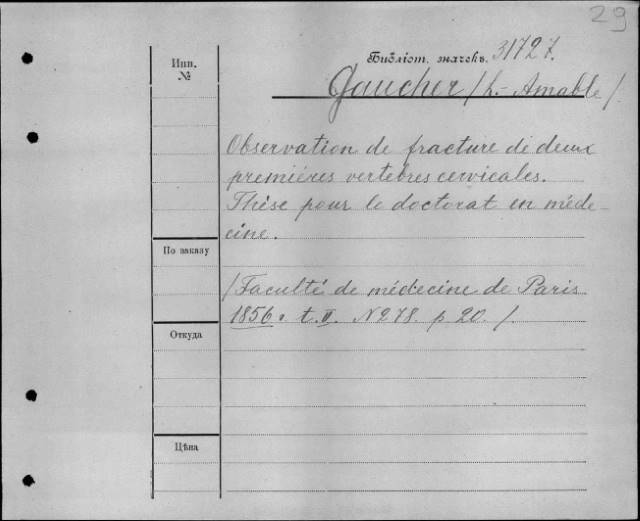 29
Инв.
№
Библіот. значекъ. 31727.
Gaucher /L.- Amable/
Observation de fracture de deux
premières vertebres cervicales.
Thèse pour le doctorat en méde-
cine.
По заказу
/Faculté de médecine de Paris
1856. t. II. N 278. p 20. /.
Откуда
Цѣна